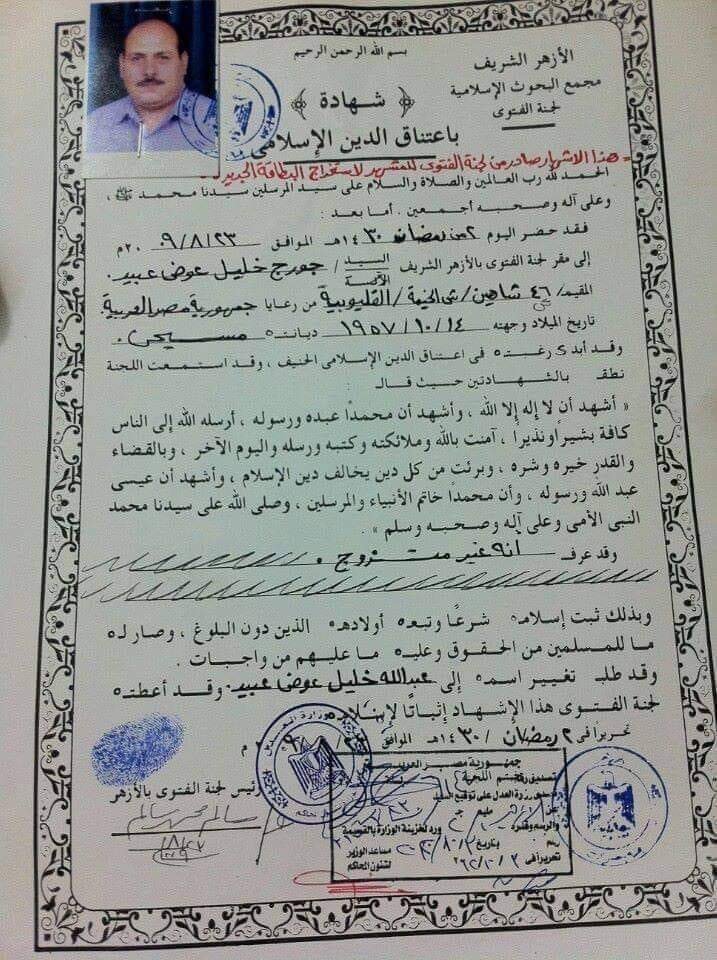 بسم الله الرحمن الرحيم
الأزهر الشريف
مجمع البحوث الإسلامية
لجنة الفتوى
شهادة
باعتناق الدين الإسلامى
هذا الاشهار صادر من لجنة الفتوى للمشهر لاستخراج البطاقة الجديدة
الحمد لله رب العالمين والصلاة والسلام على سيد المرسلين سيدنا محمد ﷺ
وعلى آله وصحبه أجمعين . أما بعد :
فقد حضر اليوم ٢ من رمضان ١٤٣٠ هـ الموافق ٢٠٠٩/٨/٢٣ م
إلى مقر لجنة الفتوى بالأزهر الشريف السيد / جورج خليل عوض عبيد .
المقيم / ٤٦ شاهين / ش الخيمة / القليوبية من رعايا جمهورية مصر العربية
تاريخ الميلاد وجهته ١٩٥٧/١٠/١٤ ديانته مسيحى .
وقد أبدى رغبته فى اعتناق الدين الإسلامى الحنيف ، وقد استمعت اللجنة
نطقه بالشهادتين حيث قال :
« أشهد أن لا إله إلا الله ، وأشهد أن محمدًا عبده ورسوله ، أرسله الله إلى الناس
كافة بشيرًا ونذيرًا ، آمنت بالله وملائكته وكتبه ورسله واليوم الآخر ، وبالقضاء
والقدر خيره وشره ، وبرئت من كل دين يخالف دين الإسلام ، وأشهد أن عيسى
عبد الله ورسوله ، وأن محمدًا خاتم الأنبياء والمرسلين ، وصلى الله على سيدنا محمد
النبى الأمى وعلى آله وصحبه وسلم » .
وقد عرف أنه غير متزوج .
وبذلك ثبت إسلامه شرعًا وتبعه أولاده الذين دون البلوغ ، وصار له
ما للمسلمين من الحقوق وعليه ما عليهم من واجبات .
وقد طلب تغيير اسمه إلى عبدالله خليل عوض عبيد . وقد أعطته
لجنة الفتوى هذا الإشهاد إثباتًا لإسلامه
تحريرًا فى ٢ رمضان ١٤٣٠ هـ الموافق م
رئيس لجنة الفتوى بالأزهر
جمهورية مصر العربية
وزارة العدل على توقيع السيد
ورد لخزينة الوزارة بالقسيمة
مساعد الوزير
لشئون المحاكم